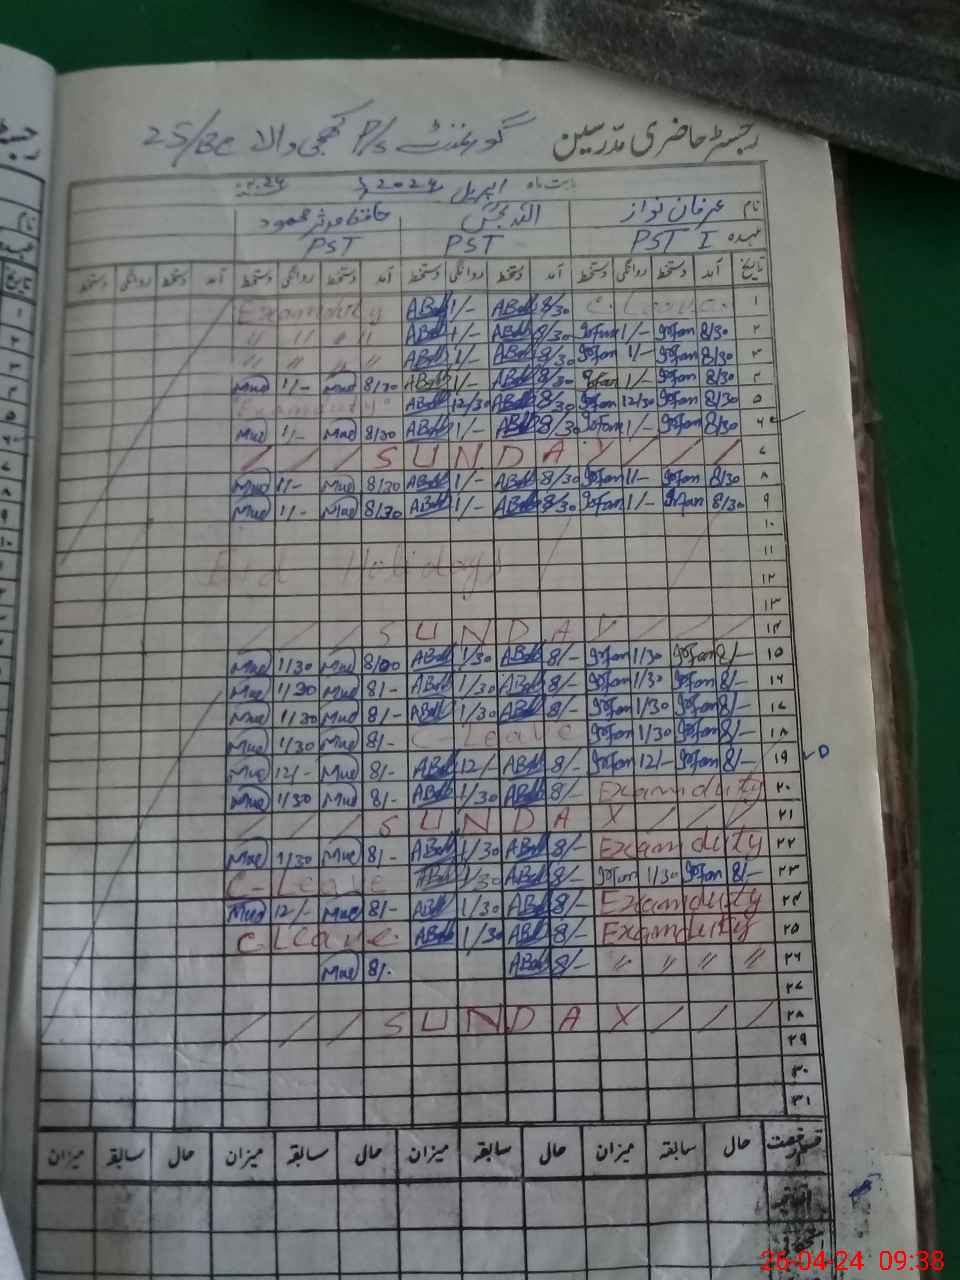 رجسٹر حاضری مدرسین گورنمنٹ P/s کھجی والا 25/BC
بابت ماہ اپریل 2024ء
نام عرفان نواز اللہ بخش حافظ مدثر محمود
عہدہ PST I PST PST
تاریخ آمد دستخط روانگی دستخط آمد دستخط روانگی دستخط آمد دستخط روانگی دستخط آمد دستخط روانگی دستخط
۱ C.Leave 8/30 ABull 1/- ABull Exam duty
۲ 8/30 Irfan 1/- Irfan 8/30 ABull 1/- ABull " " " "
۳ 8/30 Irfan 1/- Irfan 8/30 ABull 1/- ABull " " " "
۴ 8/30 Irfan 1/- Irfan 8/30 ABull 1/- ABull 8/30 Mud 1/- Mud
۵ 8/30 Irfan 12/30 Irfan 8/30 ABull 12/30 ABull Exam duty
۶ 8/30 Irfan 1/- Irfan 8/30 ABull 1/- ABull 8/30 Mud 1/- Mud
۷ / / / S U N D A Y / / /
۸ 8/30 Irfan 1/- Irfan 8/30 ABull 1/- ABull 8/30 Mud 1/- Mud
۹ 8/30 Irfan 1/- Irfan 8/30 ABull 1/- ABull 8/30 Mud 1/- Mud
۱۰
۱۱ Eid Holidays
۱۲
۱۳
۱۴ / / / S U N D A Y / / /
۱۵ 8/- Irfan 1/30 Irfan 8/- ABull 1/30 ABull 8/00 Mud 1/30 Mud
۱۶ 8/- Irfan 1/30 Irfan 8/- ABull 1/30 ABull 8/- Mud 1/30 Mud
۱۷ 8/- Irfan 1/30 Irfan 8/- ABull 1/30 ABull 8/- Mud 1/30 Mud
۱۸ 8/- Irfan 1/30 Irfan C-Leave 8/- Mud 1/30 Mud
۱۹ 8/- Irfan 12/- Irfan 8/- ABull 12/- ABull 8/- Mud 12/- Mud
۲۰ Exam duty 8/- ABull 1/30 ABull 8/- Mud 1/30 Mud
۲۱ / / / S U N D A Y / / /
۲۲ Exam duty 8/- ABull 1/30 ABull 8/- Mud 1/30 Mud
۲۳ 8/- Irfan 1/30 Irfan 8/- ABull 1/30 ABull C-Leave
۲۴ Exam duty 8/- ABull 1/30 ABull 8/- Mud 12/- Mud
۲۵ Exam duty 8/- ABull 1/30 ABull C.Leave
۲۶ " " " " 8/- ABull 8/- Mud
۲۷
۲۸ / / / S U N D A Y / / /
۲۹
۳۰
۳۱
حال سابقہ میزان حال سابقہ میزان حال سابقہ میزان حال سابقہ میزان
26-04-24 09:38